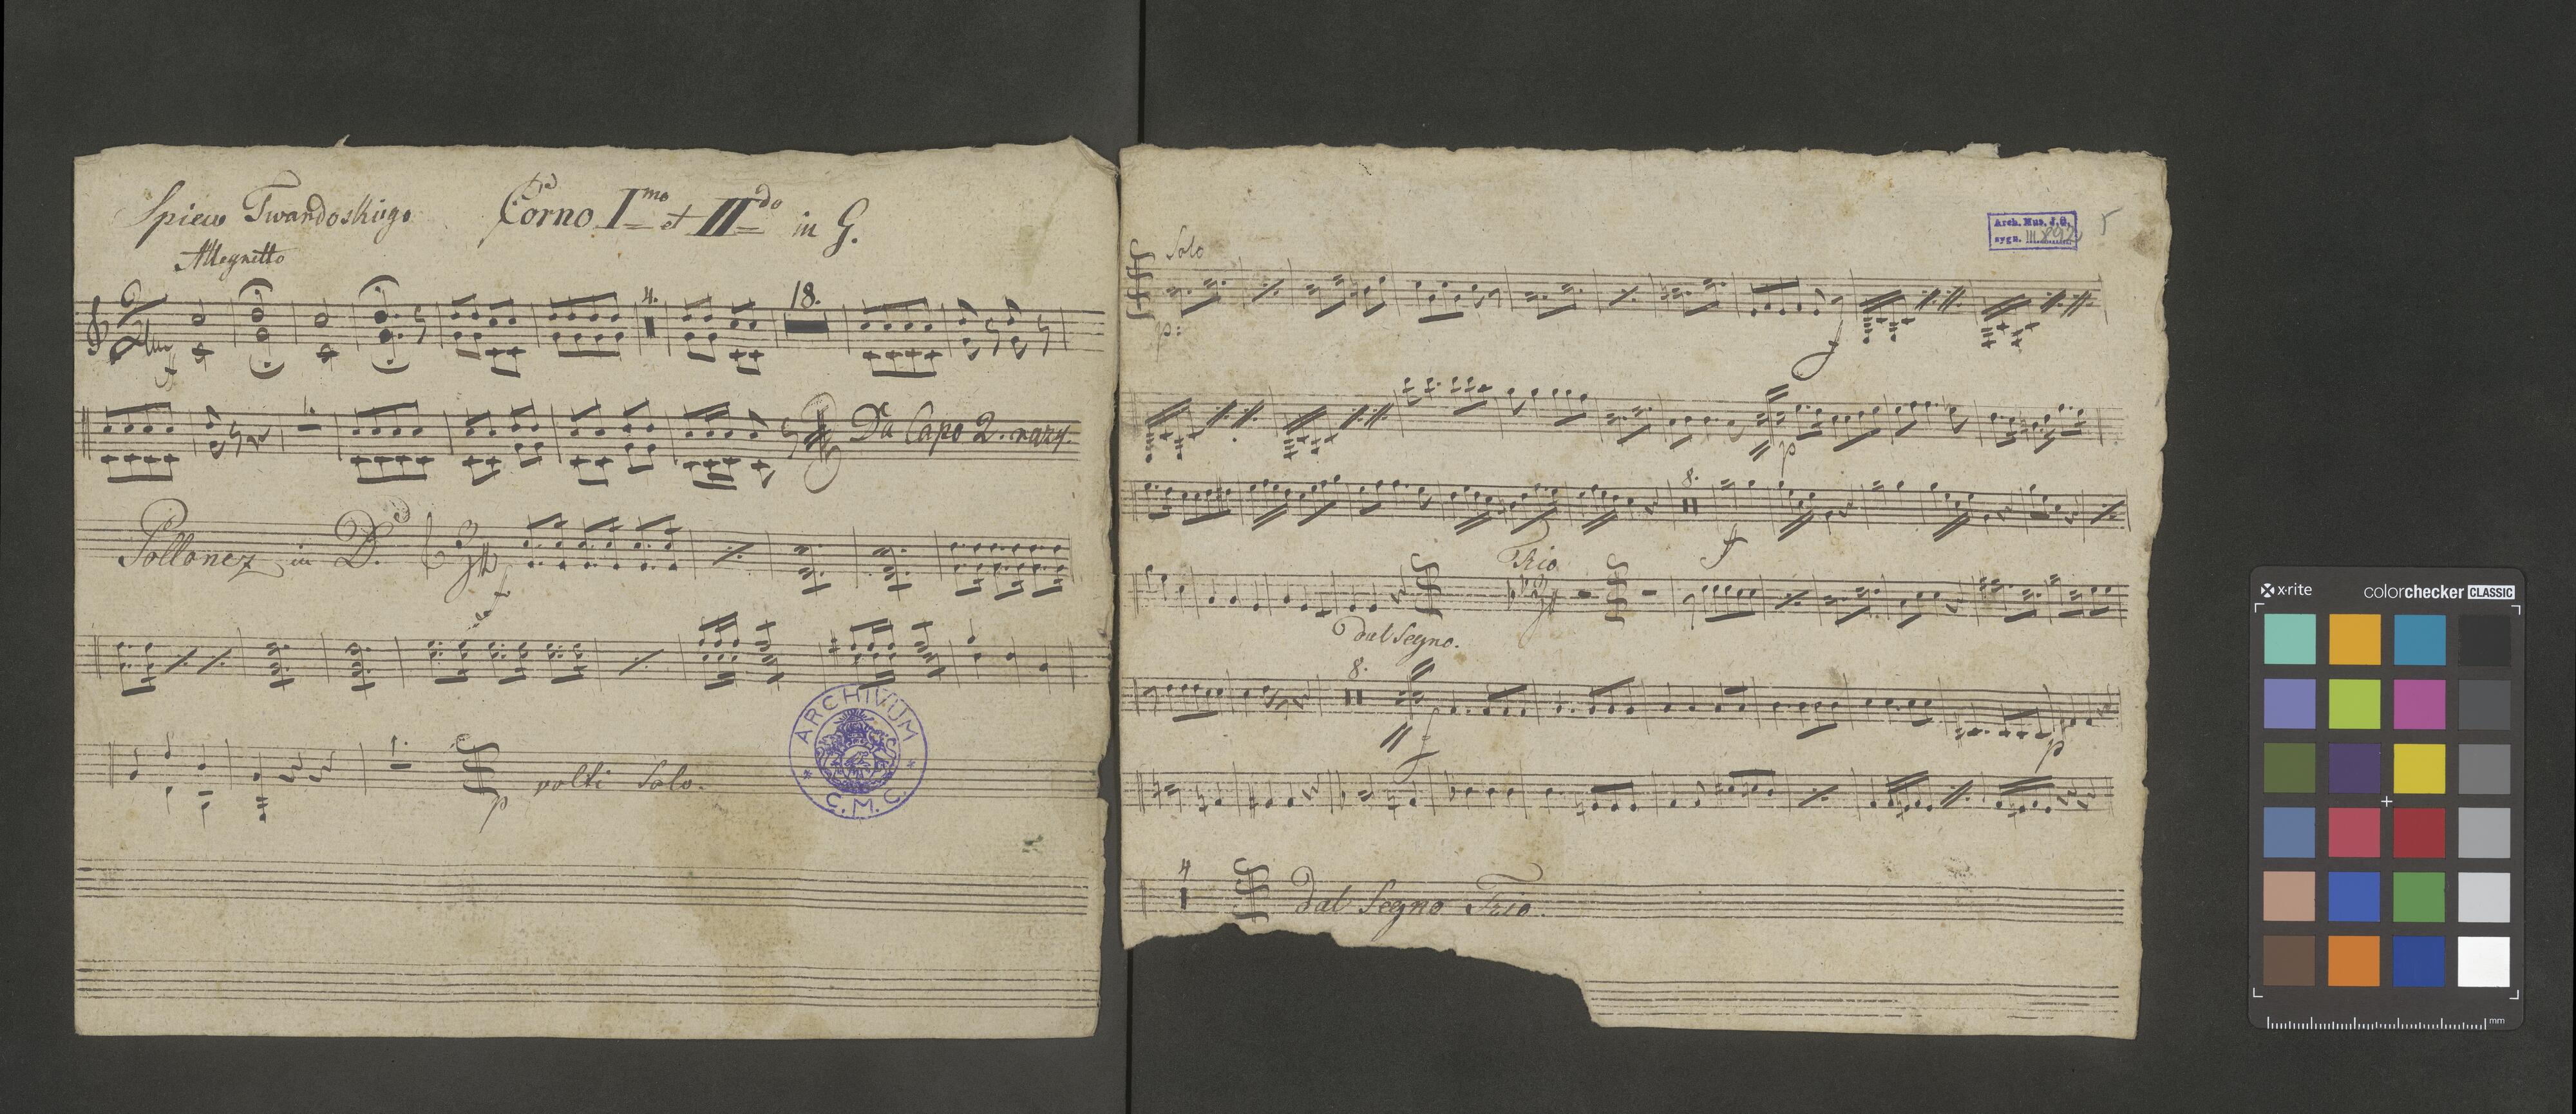 Spiew Twardoskiego Corno Imo et IIdo in G.
Allegretto
4. 18.
Da Capo 2. razy.
Pollonez in D.
1.
p volti Solo.
ARCHIVUM
C. M. C.
Arch. Mus. J. G.
sygn. III
Solo
p:
f
p
8.
f
Trio
dal Segno.
8.
f
p
4
dal Segno Trio.
x·rite colorchecker CLASSIC
mm